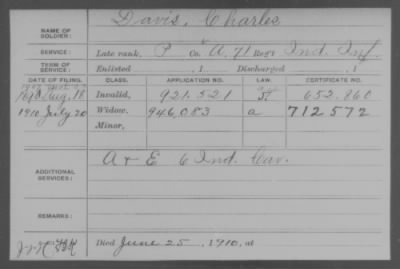 NAME OF SOLDIER: Davis, Charles
SERVICE: Late rank, P Co. A, 71 Reg't Ind. Inf.
TERM OF SERVICE: Enlisted , 1 Discharged , 1
DATE OF FILING. CLASS. APPLICATION NO. LAW. CERTIFICATE NO.
1890 Aug. 18 Invalid, 921.521 652.860
1910 July 20 Widow, 946,083 a 712572
Minor,
ADDITIONAL SERVICES: A + E 6 Ind. Cav.
REMARKS:
Died June 25, 1910, at